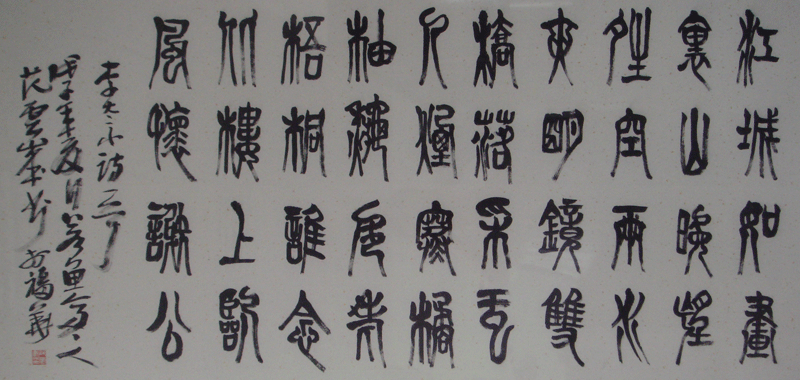 江城如畫
裏山晚望
夝空兩水
夾明鏡雙
橋落采虹
人煙寒橘
柚龝色老
梧桐誰念
北樓上臨
風懷謝公
詩一
戊子